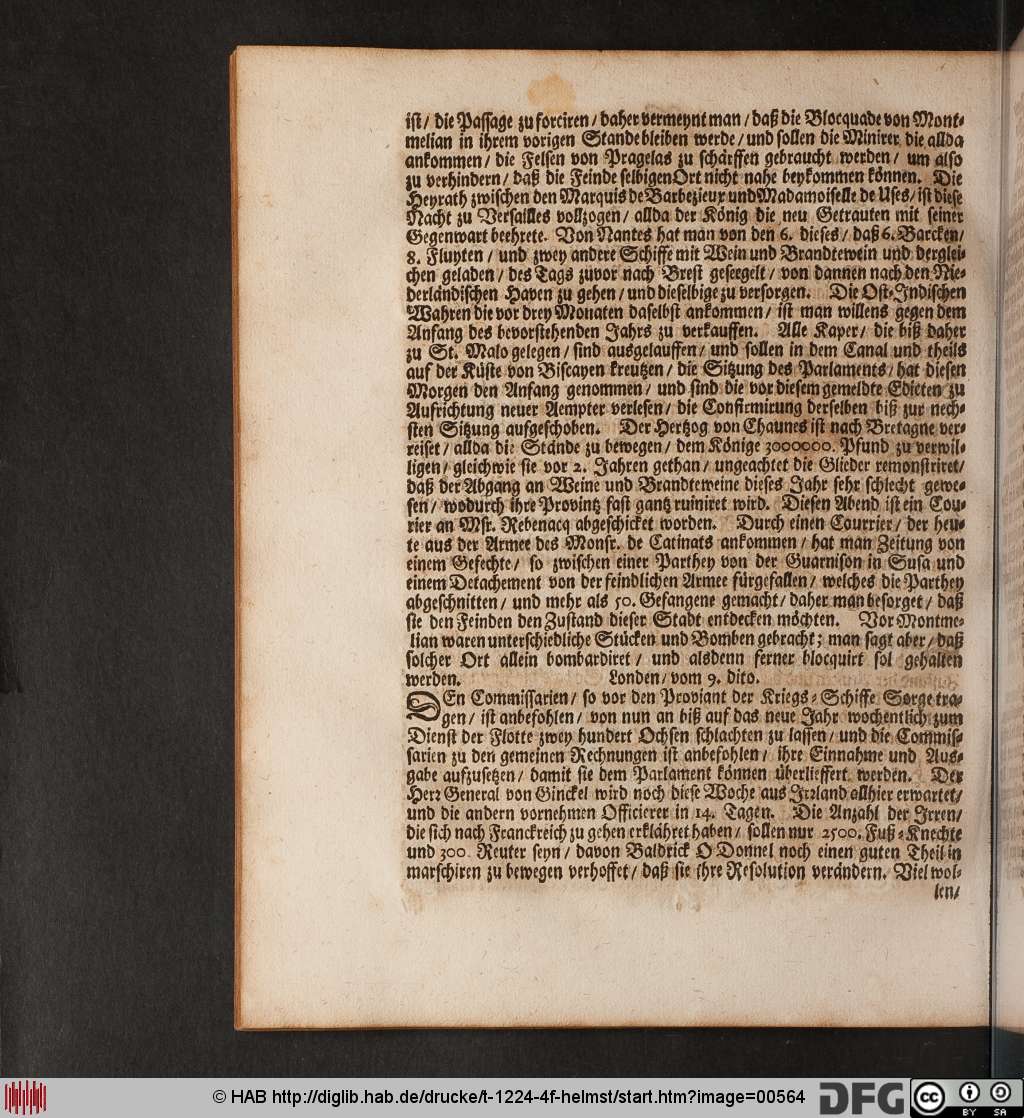 ist/ die Passage zu forciren/ daher vermeynt man/ daß die Blocquade von Mont-
melian in ihrem vorigen Stande bleiben werde/ und sollen die Minirer die allda
ankommen/ die Felsen von Pragelas zu schärffen gebraucht werden/ um also
zu verhindern/ daß die Feinde selbigen Ort nicht nahe beykommen können. Die
Heyrath zwischen den Marquis de Barbezieux und Madamoiselle de Uses/ ist diese
Nacht zu Versailles vollzogen/ allda der König die neu Getrauten mit seiner
Gegenwart beehrete. Von Nantes hat man von den 6. dieses/ daß 6. Barcken/
8. Fluyten/ und zwey andere Schiffe mit Wein und Brandtewein und derglei-
chen geladen/ des Tags zuvor nach Brest geseegelt/ von dannen nach den Nie-
derländischen Haven zu gehen/ und dieselbige zu versorgen. Die Ost-Indischen
Wahren die vor drey Monaten daselbst ankommen/ ist man willens gegen dem
Anfang des bevorstehenden Jahrs zu verkauffen. Alle Kaper/ die biß daher
zu St. Malo gelegen/ sind ausgelauffen/ und sollen in dem Canal und theils
auf der Küste von Biscayen kreutzen/ die Sitzung des Parlaments/ hat diesen
Morgen den Anfang genommen/ und sind die vor diesem gemeldte Edicten zu
Aufrichtung neuer Aempter verlesen/ die Confirmirung derselben biß zur nech-
sten Sitzung aufgeschoben. Der Hertzog von Chaunes ist nach Bretagne ver-
reiset/ allda die Stände zu bewegen/ dem Könige 3000000. Pfund zu verwil-
ligen/ gleichwie sie vor 2. Jahren gethan/ ungeachtet die Glieder remonstriret/
daß der Abgang an Weine und Brandteweine dieses Jahr sehr schlecht gewe-
sen/ wodurch ihre Provintz fast gantz ruiniret wird. Diesen Abend ist ein Cou-
rier an Msr. Rebenacq abgeschicket worden. Durch einen Courrier/ der heu-
te aus der Armee des Monsr. de Catinats ankommen/ hat man Zeitung von
einem Gefechte/ so zwischen einer Parthey von der Guarnison in Susa und
einem Detachement von der feindlichen Armee fürgefallen/ welches die Parthey
abgeschnitten/ und mehr als 50. Gefangene gemacht/ daher man besorget/ daß
sie den Feinden den Zustand dieser Stadt entdecken möchten. Vor Montme-
lian waren unterschiedliche Stücken und Bomben gebracht; man sagt aber/ daß
solcher Ort allein bombardiret/ und alsdenn ferner blocquirt sol gehalten
werden. Londen/ vom 9. dito.
DEn Commissarien/ so vor den Proviant der Kriegs-Schiffe Sorge tra-
gen/ ist anbefohlen/ von nun an biß auf das neue Jahr wochentlich zum
Dienst der Flotte zwey hundert Ochsen schlachten zu lassen/ und die Commis-
sarien zu den gemeinen Rechnungen ist anbefohlen/ ihre Einnahme und Aus-
gabe aufzusetzen/ damit sie dem Parlament können überlieffert werden. Der
Herr General von Ginckel wird noch diese Woche aus Irrland allhier erwartet/
und die andern vornehmen Officierer in 14. Tagen. Die Anzahl der Irren/
die sich nach Franckreich zu gehen erklähret haben/ sollen nur 2500. Fuß-Knechte
und 300. Reuter seyn/ davon Baldrick O Donnel noch einen guten Theil in
marschiren zu bewegen verhoffet/ daß sie ihre Resolution verändern. Viel wol-
len/
© HAB http://diglib.hab.de/drucke/t-1224-4f-helmst/start.htm?image=00564
DFG
cc BY SA